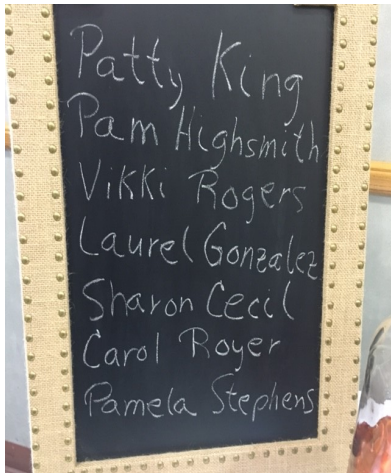 Patty King
Pam Highsmith
Vikki Rogers
Laurel Gonzalez
Sharon Cecil
Carol Royer
Pamela Stephens